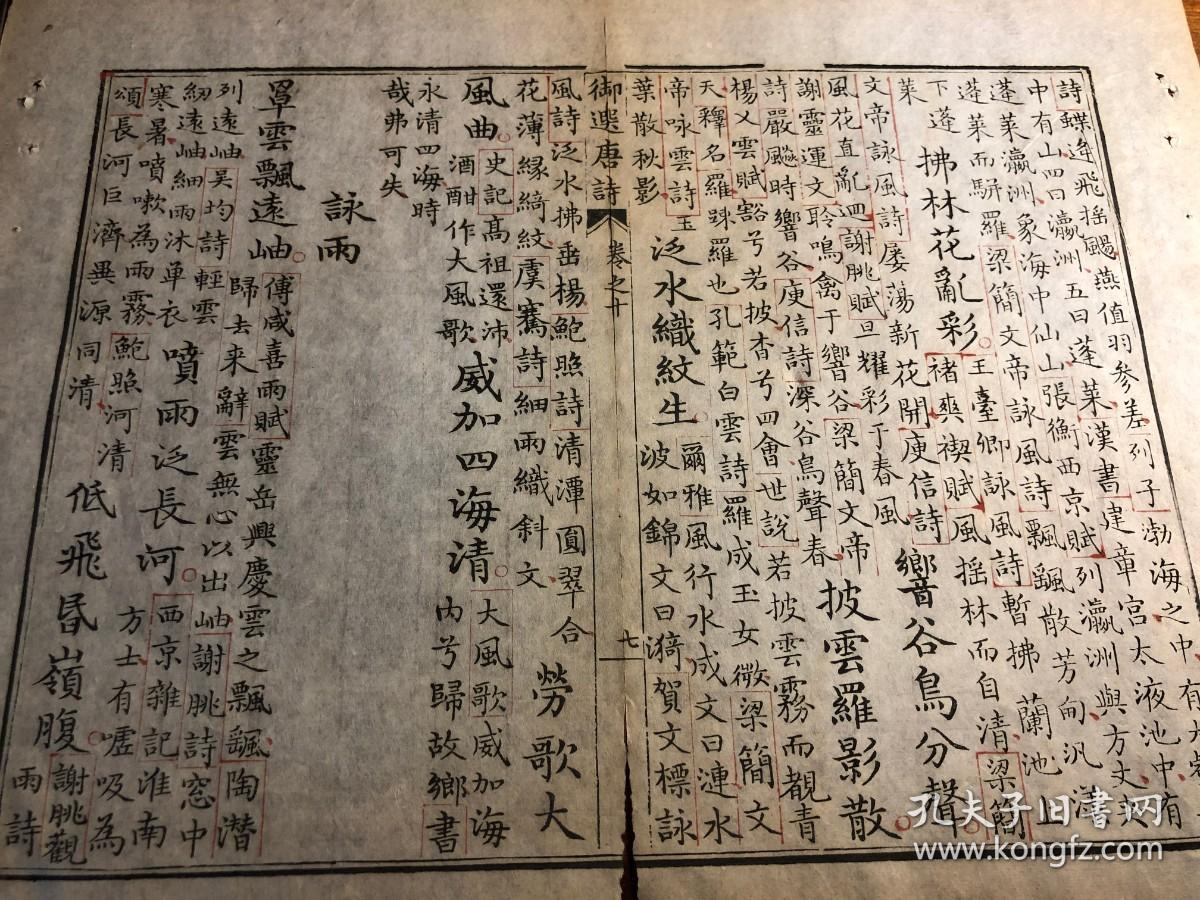 詩蝶逢飛搖颺燕值羽參差列子渤海之中有
中有山四曰瀛洲五曰蓬萊漢書建章宮太液池中有
蓬萊瀛洲象海中仙山張衡西京賦列瀛洲與方丈夾
蓬萊而駢羅梁簡文帝詠風詩飄颻散芳甸汎漾
下蓬萊
拂林花亂彩
王臺卿詠風詩暫拂蘭池上
褚爽禊賦風搖林而自清梁簡
文帝詠風詩屡蕩新花開庾信詩
風花直亂迴謝朓賦旦耀彩于春風
響谷鳥分聲
謝靈運文聆鳴禽于響谷梁簡文帝
詩嚴飈時響谷庾信詩深谷鳥聲春
披雲羅影散
楊乂雲賦豁兮若披杳兮四會世說若披雲霧而覩青
天釋名羅踈羅也孔範白雲詩羅成玉女微梁簡文
帝咏雲詩玉
葉散秋影
泛水織紋生
爾雅風行水成文曰漣水
波如錦文曰漪賀文標詠
御選唐詩
卷之十
七
風詩泛水拂垂楊鮑照詩清潭圓翠合
花薄緣綺紋虞騫詩細雨織斜文
勞歌大
風曲
史記高祖還沛
酒酣作大風歌
威加四海清
大風歌威加海
內兮歸故鄉書
永清四海時
哉弗可失
詠雨
罩雲飄遠岫
傅咸喜雨賦靈岳興慶雲之飄颻陶潛
歸去來辭雲無心以出岫謝朓詩窓中
列遠岫吴均詩輕雲
紉遠岫細雨沐單衣
噴雨泛長河
西京雜記淮南
方士有嘘吸為
寒暑噴嗽為雨霧鮑照河清
頌長河巨濟異源同清
低飛昏嶺腹
謝朓觀
雨詩
孔夫子旧書网
www.kongfz.com